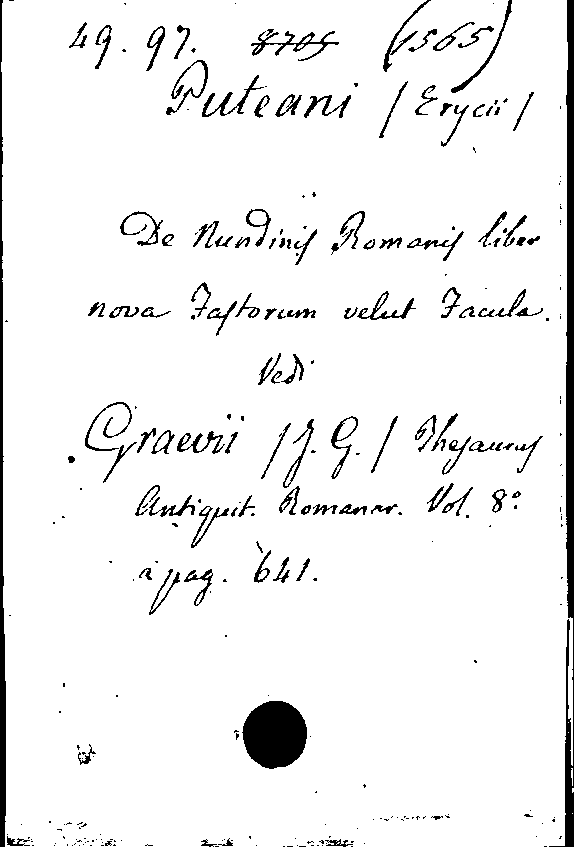 49. 97. 8705 (1565)
Puteani / Erycii /
De Nundinis Romanis liber
nova Fastorum velut Facula.
Vedi
Graevii / J. G. / Thesaurus
Antiquit. Romanar. Vol. 8º
à pag. 641.